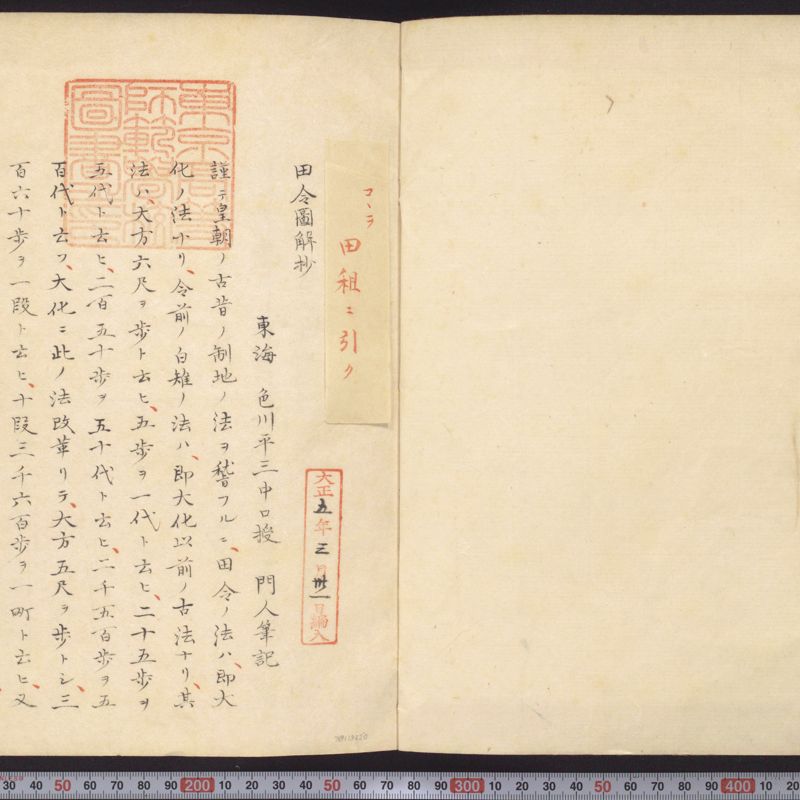 コヽヲ
田租ニ引ク
田令圖解抄
東海 色川平三中口授 門人筆記
謹テ皇朝ノ古昔ノ制地ノ法ヲ稽フルニ、田令ノ法ハ、即大
化ノ法ナリ、令前ノ白雉ノ法ハ、即大化以前ノ古法ナリ、其
法ハ、大方六尺ヲ歩ト云ヒ、五歩ヲ一代ト云ヒ、二十五歩ヲ
五代ト云ヒ、二百五十歩ヲ五十代ト云ヒ、二千五百歩ヲ五
百代ト云フ、大化ニ此ノ法改革リテ、大方五尺ヲ歩トシ、三
百六十歩ヲ一段ト云ヒ、十段三千六百歩ヲ一町ト云ヒ、又
大正五年三月卅一日編入
東京高等
師範學校
圖書
30 40 50 60 70 80 90 200 10 20 30 40 50 60 70 80 90 300 10 20 30 40 50 60 70 80 90 400 10 20